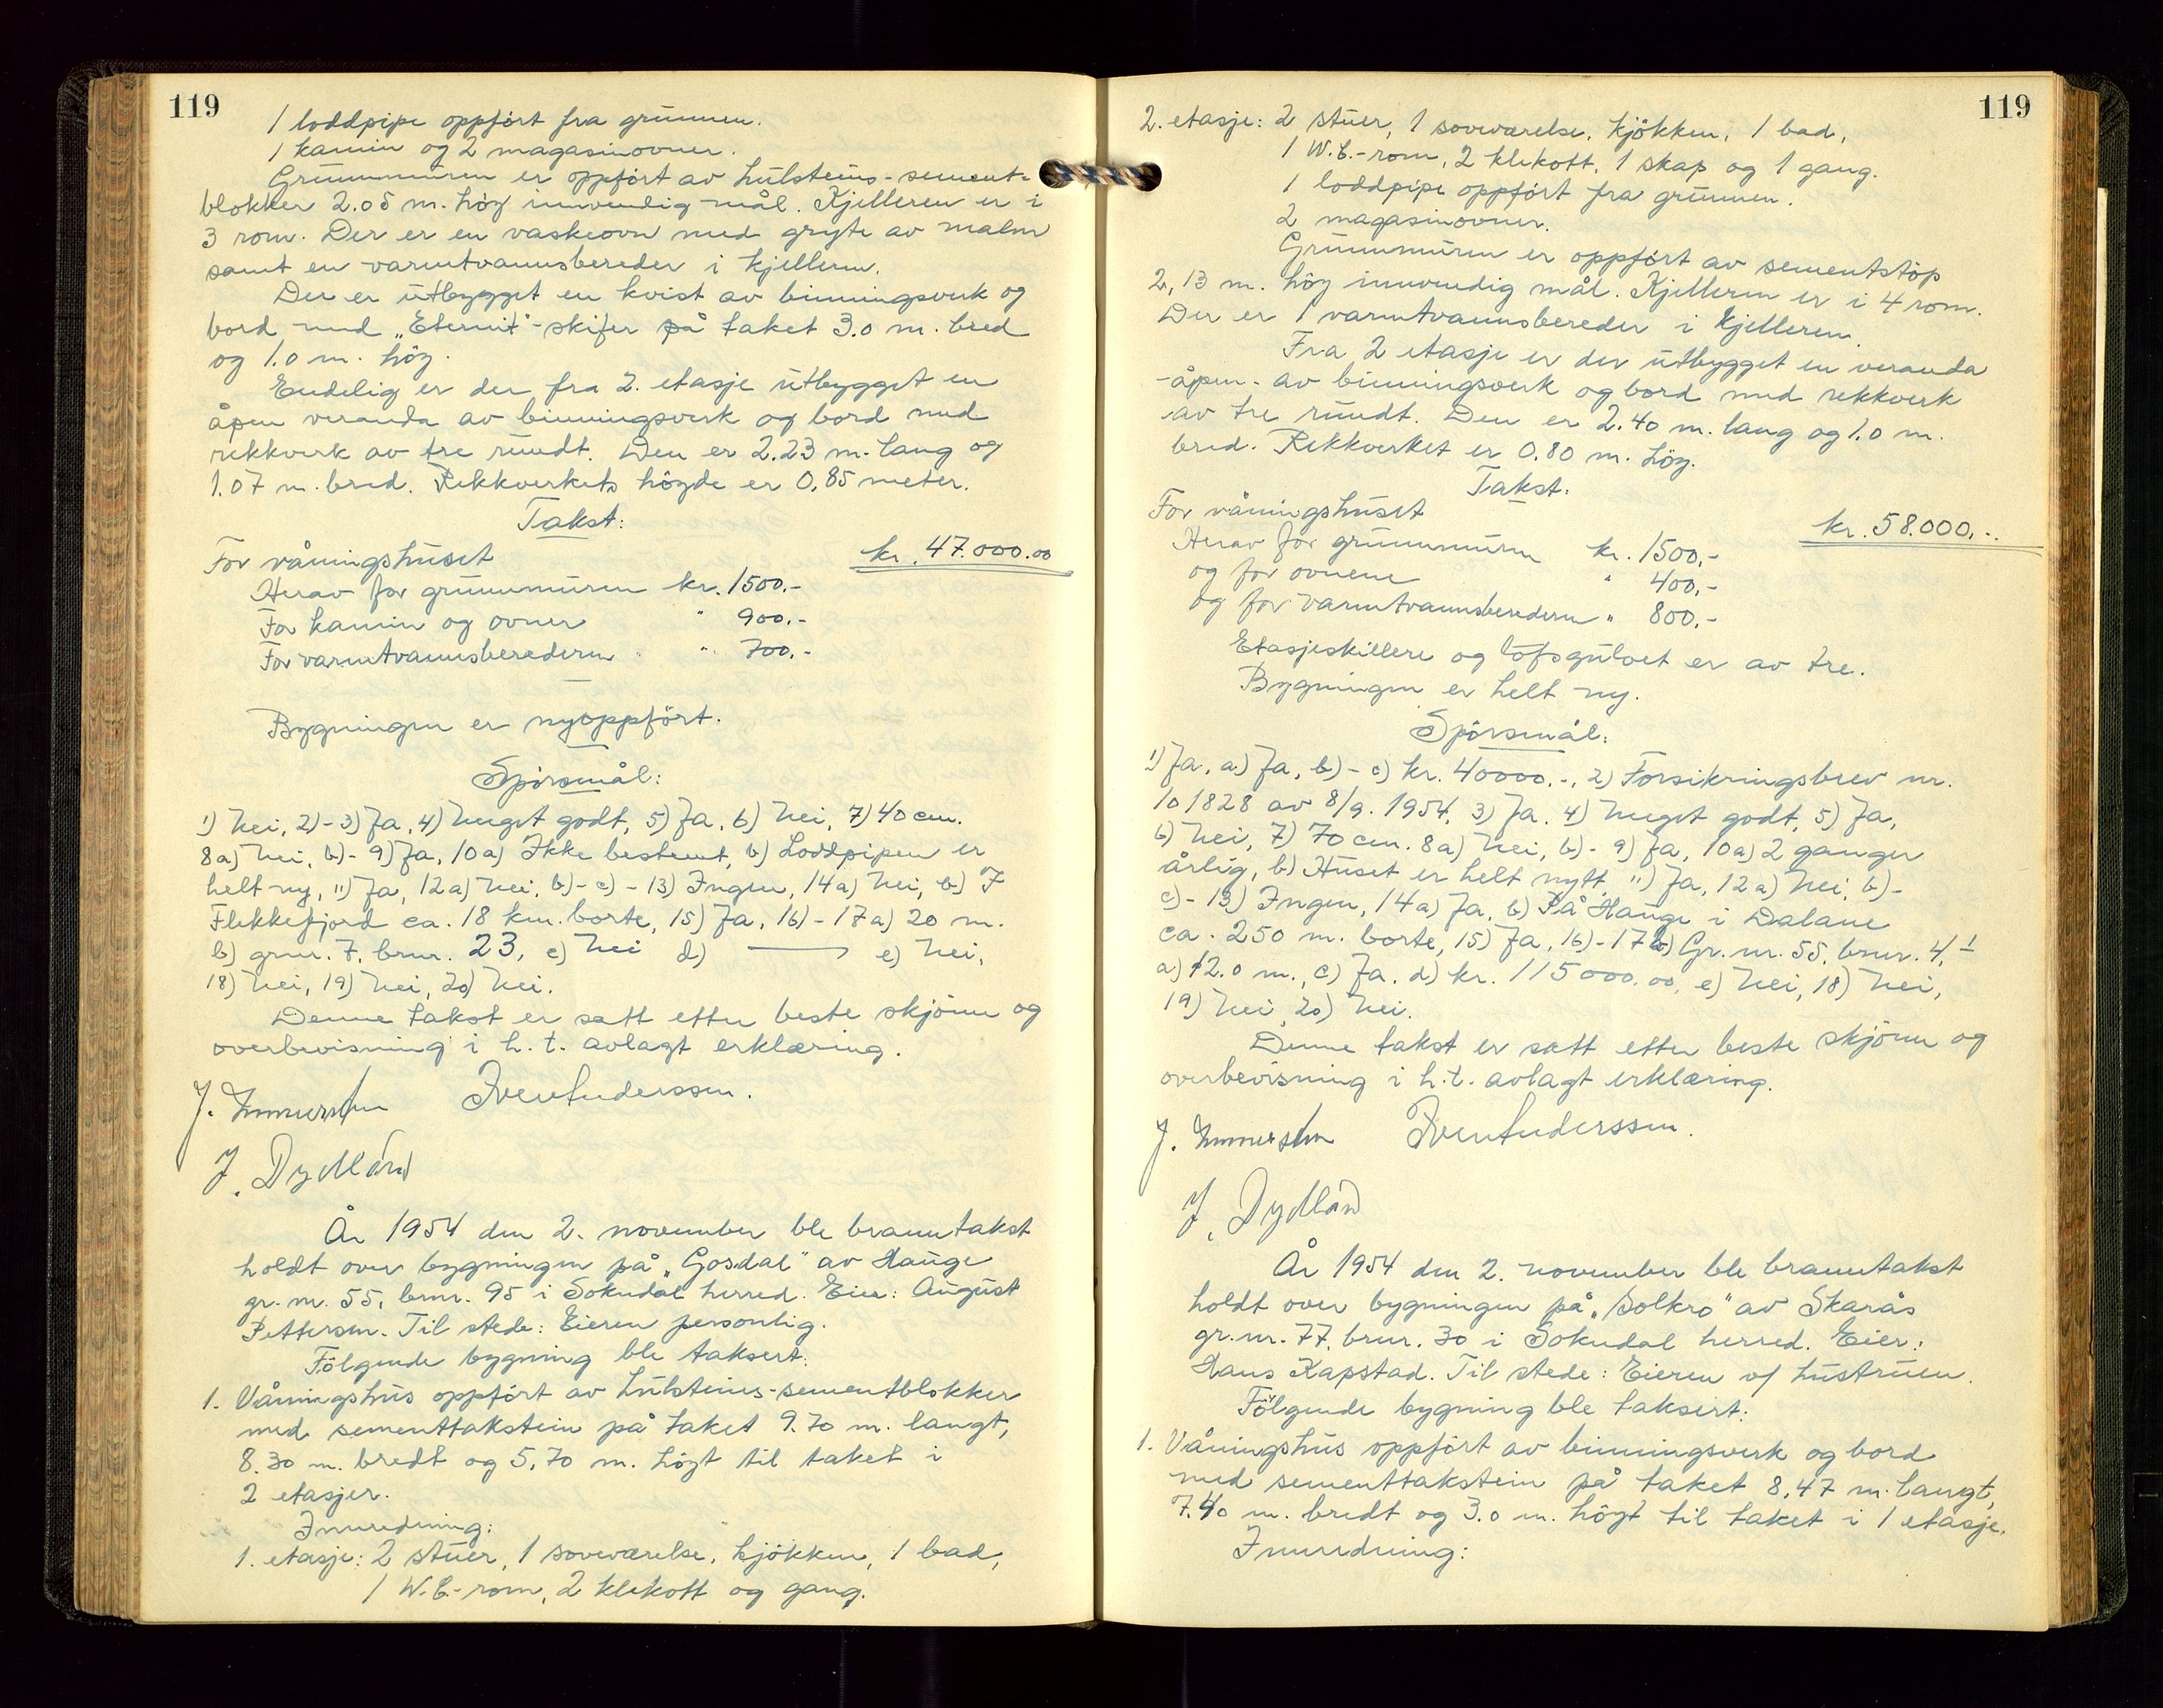 119
1 loddpipe oppført fra grunnen.
1 kamin og 2 magasinovner.
Grunnmuren er oppført av hulsteins-sement-
blokker 2.05 m. høg innvendig mål. Kjelleren er i
3 rom. Der er en vaskeovn med gryte av malm
samt en varmtvannsbereder i kjelleren.
Der er utbygget en kvist av binningsverk og
bord med "Eternit"-skifer på taket 3.0 m. bred
og 1.0 m. høg.
Endelig er der fra 2. etasje utbygget en
åpen veranda av binningsverk og bord med
rekkverk av tre rundt. Den er 2.23 m. lang og
1.07 m. bred. Rekkverkets høgde er 0,85 meter.
Takst:
For våningshuset kr. 47.000.00
Herav for grunnmuren kr. 1500,-
For kamin og ovner " 900,-
For varmtvannsberederen " 700,-
Bygningen er nyoppført.
Spørsmål:
1) Nei, 2)-3) Ja, 4) Meget godt, 5) Ja, 6) Nei, 7) 40 cm.
8a) Nei, b)- 9) Ja, 10a) Ikke bestemt, b) Loddpipen er
helt ny, 11) Ja, 12a) Nei, b)-c)-13) Ingen, 14a) Nei, b) I
Flekkefjord ca. 18 km. borte, 15) Ja, 16)-17a) 20 m.
b) grnr. 7, brnr. 23, c) Nei d) — e) Nei,
18) Nei, 19) Nei, 20) Nei.
Denne takst er satt etter beste skjønn og
overbevisning i h.t. avlagt erklæring.
J. Immerstein Iven Anderssen.
J. Dydland
År 1954 den 2. november ble branntakst
holdt over bygningen på "Gosdal" av Hauge
gr. nr. 55, brnr. 95 i Sokndal herred. Eier: August
Pettersen. Til stede: Eieren personlig.
Følgende bygning ble taksert:
1. Våningshus oppført av hulsteins-sementblokker
med sementtakstein på taket 9.70 m. langt,
8.30 m. bredt og 5,70 m. høgt til taket i
2 etasjer.
Innredning:
1. etasje: 2 stuer, 1 soveværelse, kjøkken, 1 bad,
1 W.C.-rom, 2 klekott og gang.
119
2. etasje: 2 stuer, 1 soveværelse, kjøkken, 1 bad,
1 W.C.-rom, 2 klekott, 1 skap og 1 gang.
1 loddpipe oppført fra grunnen.
2 magasinovner.
Grunnmuren er oppført av sementstøp
2,13 m. høg innvendig mål. Kjelleren er i 4 rom.
Der er 1 varmtvannsbereder i kjelleren.
Fra 2 etasje er der utbygget en veranda
-åpen- av binningsverk og bord med rekkverk
av tre rundt. Den er 2.40 m. lang og 1.0 m.
bred. Rekkverket er 0.80 m. høg.
Takst:
For våningshuset kr. 58.000,--
Herav for grunnmuren kr. 1500,-
og for ovnene " 400,-
og for varmtvannsberederen " 800,-
Etasjeskillere og loftsgulvet er av tre.
Bygningen er helt ny.
Spørsmål:
1) Ja, a) Ja, b)- c) kr. 40000.-, 2) Forsikringsbrev nr.
101828 av 8/9. 1954, 3) Ja. 4) Meget godt, 5) Ja,
6) Nei, 7) 70 cm. 8a) Nei, b)- 9) Ja, 10a) 2 ganger
årlig, b) Huset er helt nytt. 11) Ja, 12a) Nei, b)-
c)- 13) Ingen, 14a) Ja, b) På Hauge i Dalane
ca. 250 m. borte, 15) Ja, 16)-17b) Gr. nr. 55, brnr. 4,1
a) 12.0 m., c) Ja. d) kr. 115000.00, e) Nei, 18) Nei,
19) Nei, 20) Nei.
Denne takst er satt etter beste skjønn og
overbevisning i h.t. avlagt erklæring.
J. Immerstein Iven Anderssen.
J. Dydland
År 1954 den 2. november ble branntakst
holdt over bygningen på "Solkro" av Skarås
gr. nr. 77, brnr. 30 i Sokndal herred. Eier:
Hans Kapstad. Til stede: Eieren v/ hustruen.
Følgende bygning ble taksert:
1. Våningshus oppført av binningsverk og bord
med sementtakstein på taket 8,47 m. langt,
7.40 m. bredt og 3.0 m. høgt til taket i 1 etasje.
Innredning: